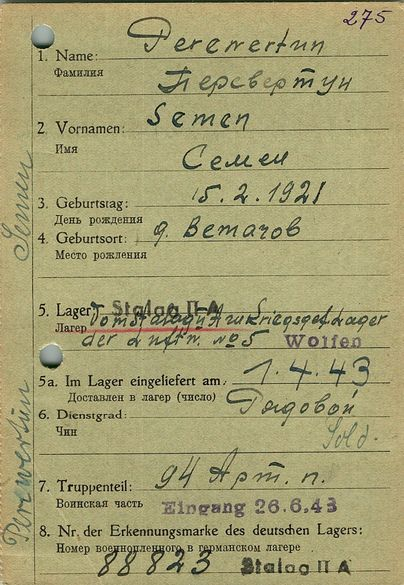 275
1. Name: Perewertun
Фамилия Перевертун
2. Vornamen: Semen
Имя Семен
3. Geburtstag: 15.2.1921
День рождения
4. Geburtsort: д. Ветачов
Место рождения
5. Lager: Stalag II A
Лагер Vom Stalag II A zu Kriegsgef. Lager
der Luftw. No 5 Wolfen
5a. Im Lager eingeliefert am: 1.4.43
Доставлен в лагер (число)
6. Dienstgrad: Рядовой
Чин Sold.
7. Truppenteil: 94 Арт. п.
Воинская часть Eingang 26.6.43
8. Nr. der Erkennungsmarke des deutschen Lagers:
Номер военнопленного в германском лагере
88823 Stalag II A
Perewertun Semen